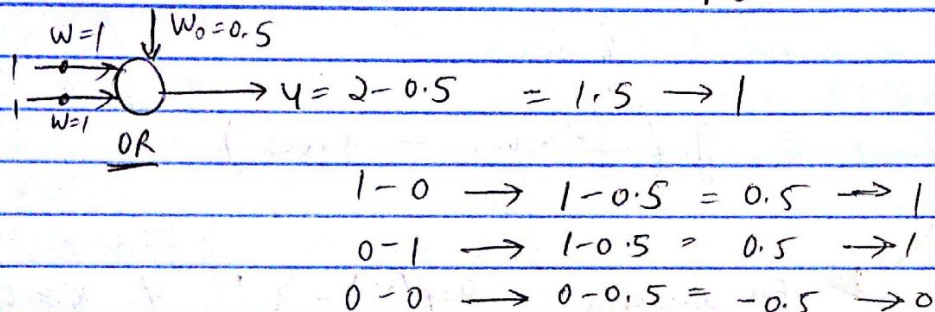 W=1 W₀=0.5
1
1 y = 2-0.5 = 1.5 → 1
W=1
OR
1-0 → 1-0.5 = 0.5 → 1
0-1 → 1-0.5 = 0.5 → 1
0-0 → 0-0.5 = -0.5 → 0